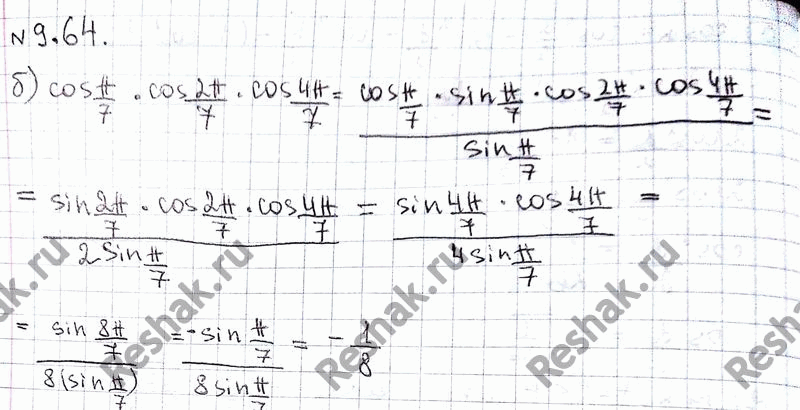 N 9.64.
б) cos π/7 · cos 2π/7 · cos 4π/7 = (cos π/7 · sin π/7 · cos 2π/7 · cos 4π/7) / (sin π/7) =
= (sin 2π/7 · cos 2π/7 · cos 4π/7) / (2 sin π/7) = (sin 4π/7 · cos 4π/7) / (4 sin π/7) =
= (sin 8π/7) / (8(sin π/7)) = (-sin π/7) / (8 sin π/7) = - 1/8
Reshak.ru
Reshak.ru
Reshak.ru
Reshak.ru